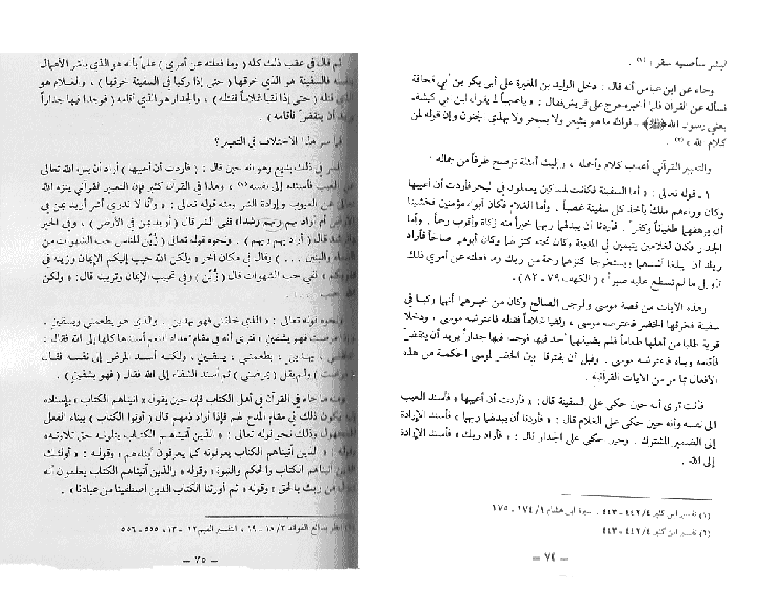 البشر سأصليه سقر » (١) .
وجاء عن ابن عباس أنه قال : دخل الوليد بن المغيرة على أبي بكر بن أبي قحافة
فسأله عن القرآن فلما أخبره خرج على قريش فقال : « يا عجباً لما يقول ابن أبي كبشة
يعني رسول الله ﷺ . فوالله ما هو بشعر ولا بسحر ولا بهذي الجنون وإن قوله لمن
كلام الله » (٢) .
والتعبير القرآني أعذب كلام وأجمله ، وإليك أمثلة توضح طرفاً من جماله :
١ ـ قوله تعالى : « أما السفينة فكانت لمساكين يعملون في البحر فأردت أن أعيبها
وكان وراءهم ملك يأخذ كل سفينة غصباً . وأما الغلام فكان أبواه مؤمنين فخشينا
أن يرهقهما طغياناً وكفراً . فأردنا أن يبدلهما ربهما خيراً منه زكاة وأقرب رحماً . وأما
الجدار فكان لغلامين يتيمين في المدينة وكان تحته كنز لهما وكان أبوهما صالحاً فأراد
ربك أن يبلغا أشدهما ويستخرجا كنزهما رحمة من ربك وما فعلته عن أمري ذلك
تأويل ما لم تسطع عليه صبراً » ( الكهف ٧٩ ـ ٨٢ )
وهذه الآيات من قصة موسى والرجل الصالح وكان من خبرهما أنهما ركبا في
سفينة فخرقها الخضر فاعترضه موسى . ولقيا غلاماً فقتله فاعترضه موسى ، ودخلا
قرية طلبا من أهلها طعاماً فلم يضيفهما أحد فيها فوجدا فيها جداراً يريد أن ينقض
فأقامه وبناه فاعترضه موسى . وقبل أن يفترقا بين الخضر لموسى الحكمة من هذه
الأفعال بما مر من الآيات القرآنية .
فأنت ترى أنه حين حكى على السفينة قال : « فأردت أن أعيبها » فأسند العيب
الى نفسه وأنه حين حكى على الغلام قال : « فأردنا أن يبدلهما ربهما » فأسند الإرادة
إلى الضمير المشترك . وحين حكى على الجدار قال : « فأراد ربك » فأسند الإرادة
إلى الله .
(١) تفسير ابن كثير ٤/ ٤٤٢ ـ ٤٤٣ . سيرة ابن هشام ١/ ١٧٤ ، ١٧٥
(٢) تفسير ابن كثير ٤/ ٤٤٢ ـ ٤٤٣
ـ ٧٤ ـ
ثم قال في عقب ذلك كله ( وما فعلته عن أمري ) علماً بأنه هو الذي باشر الأعمال
فالسفينة هو الذي خرقها ( حتى إذا ركبا في السفينة خرقها ) ، والغلام هو
قتله ( حتى إذا لقيا غلاماً فقتله ) ، والجدار هو الذي أقامه ( فوجدا فيها جداراً
يريد أن ينقض فأقامه )
فما سر هذا الاختلاف في التعبير؟
في ذلك بديع وهو أنه حين قال : « فأردت أن أعيبها » أراد أن ينزه الله تعالى
عن العيب فأسنده إلى نفسه (١) ، وهذا في القرآن كثير فإن التعبير القرآني ينزه الله
عن العيوب وإرادة الشر ومنه قوله تعالى : « وأنّا لا ندري أشر أريد بمن في
الأرض أم أراد بهم ربهم رشدا » ففي الشر قال ( أريد بمن في الأرض ) ، وفي الخير
والرشد قال ( أراد بهم ربهم ) . ونحوه قوله تعالى ( زُيّن للناس حب الشهوات من
النساء والبنين . . . ) وقال في مكان آخر « ولكن الله حبب إليكم الإيمان وزينه في
قلوبكم » ففي حب الشهوات قال ( زُيّن ) وفي تحبيب الإيمان وتزيينه قال : « ولكن
الله حبب . . . » .
ونحوه قوله تعالى : « الذي خلقني فهو يهدين . والذي هو يطعمني ويسقين .
وإذا مرضت فهو يشفين » فترى أنه في مقام تعداد النعم أسندها كلها إلى الله فقال :
خلقني ، يهدين ، يطعمني ، يسقين ، ولكنه أسند المرض إلى نفسه فقال
( مرضت ) ولم يقل ( يمرضني ) ثم أسند الشفاء إلى الله فقال ( فهو يشفين ) .
ومنه ما جاء في القرآن في أهل الكتاب فإنه حين يقول « آتيناهم الكتاب » بإسناده
إليه يكون ذلك في مقام المدح لهم فإذا أراد ذمهم قال ( أوتوا الكتاب ) ببناء الفعل
للمجهول وذلك نحو قوله تعالى : « الذين آتيناهم الكتاب يتلونه حق تلاوته »
وقوله : « الذين آتيناهم الكتاب يعرفونه كما يعرفون أبناءهم » وقوله : « أولئك
الذين آتيناهم الكتاب والحكم والنبوة » وقوله « والذين آتيناهم الكتاب يعلمون أنه
منزل من ربك بالحق » وقوله « ثم أورثنا الكتاب الذين اصطفينا من عبادنا » .
(١) انظر بدائع الفوائد ٢/ ١٨ ـ ١٩ ، التفسير القيم ١٢ ـ ١٣ ، ٥٥٥ ـ ٥٥٦
ـ ٧٥ ـ